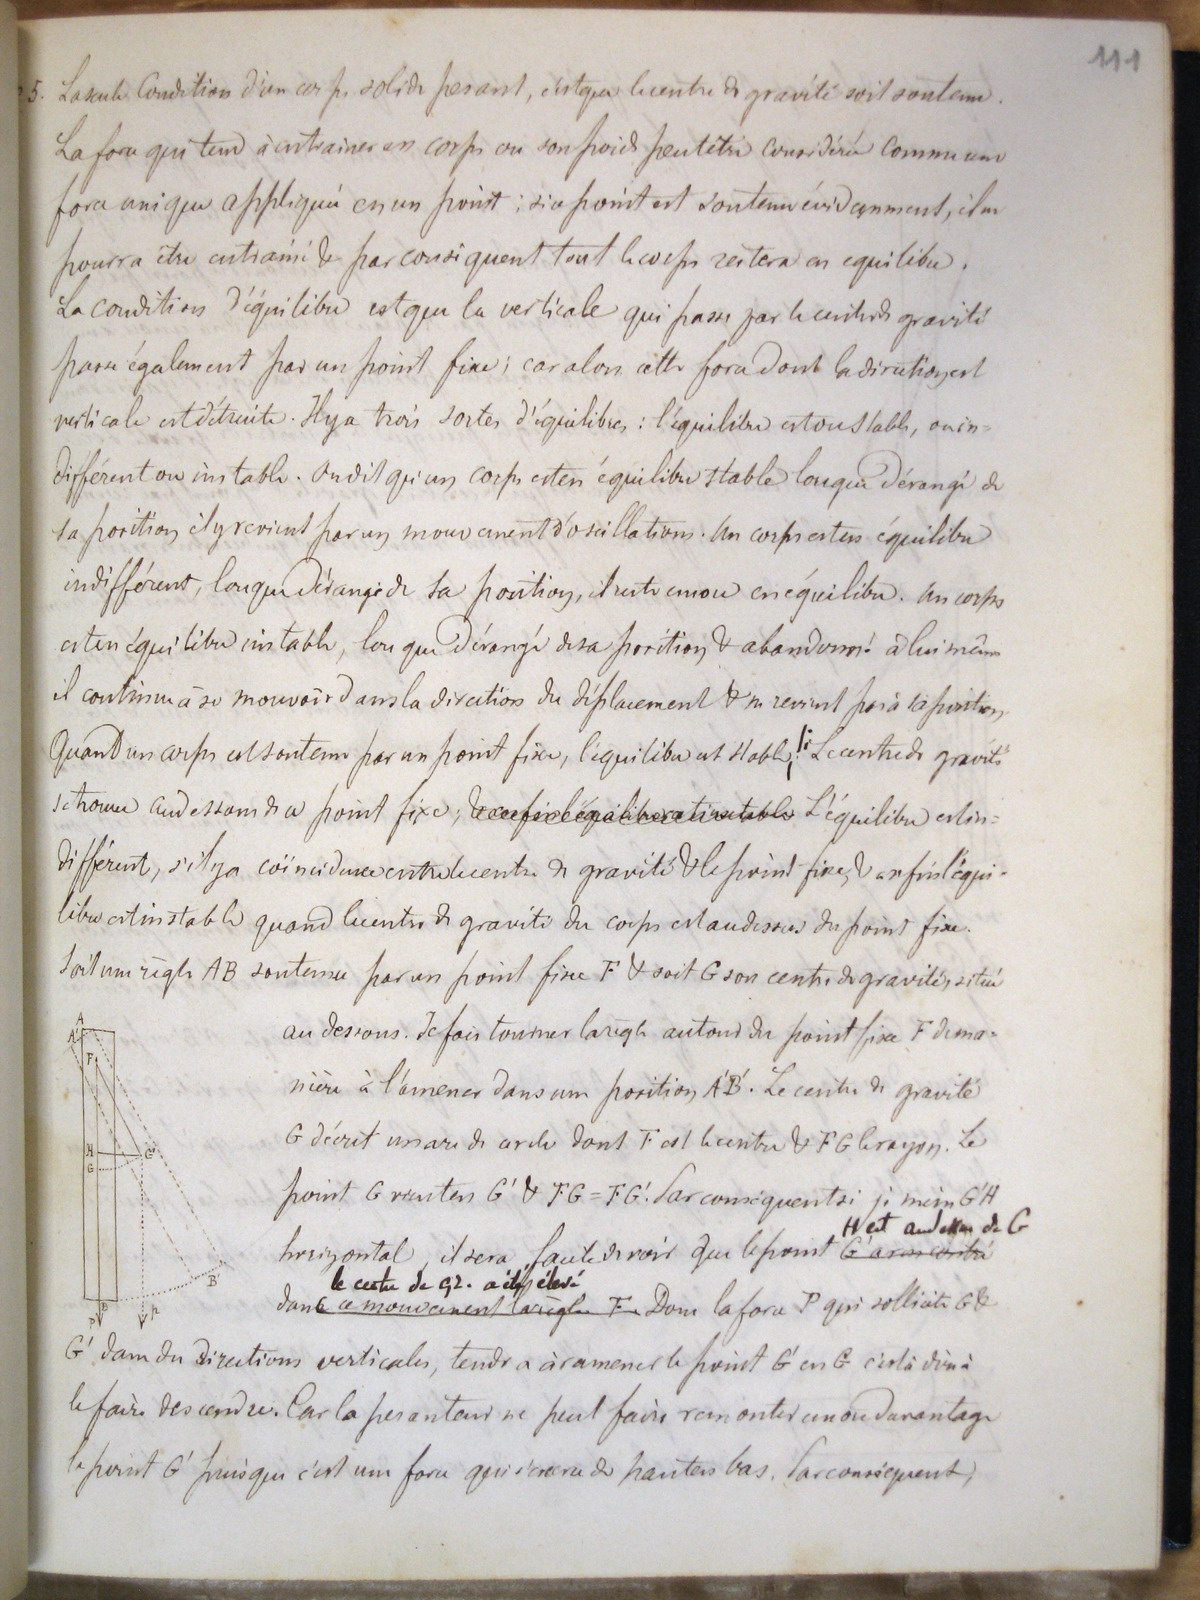 111
5. La seule Condition d'un corps solide pesant, c'est que le centre de gravité soit soutenu.
La force qui tend à entrainer un corps ou son poids peut être considérée comme une
force unique appliquée en un point ; si ce point est soutenu évidemment, il ne
pourra être entrainé & par conséquent tout le corps restera en equilibre.
La condition d'équilibre est que la verticale qui passe par le centre de gravité
passe également par un point fixe ; car alors cette force dont la direction est
verticale est détruite. Il y a trois sortes d'équilibres : l'équilibre est ou stable, ou in=
différent ou instable. On dit qu'un corps est en équilibre stable lorsque dérangé de
sa position il y revient par un mouvement d'oscillation. Un corps est en équilibre
indifférent, lorsque dérangé de sa position, il reste encore en équilibre. Un corps
est en équilibre instable, lorsque dérangé de sa position & abandonné à lui même
il continue à se mouvoir dans la direction du déplacement & ne revient pas à sa position
Quand un corps est soutenu par un point fixe, l'équilibre est stable, si Le centre de gravité
se trouve au dessous de ce point fixe ; & enfin l'équilibre est instable L'équilibre est in=
différent, s'il y a coïncidence entre le centre de gravité & le point fixe, & enfin l'équi=
libre est instable quand le centre de gravité du corps est au dessus du point fixe.
Soit une règle AB soutenue par un point fixe F & soit G son centre de gravité, situé
au dessous. Je fais tourner la règle autour du point fixe F de ma=
nière à l'amener dans une position A'B'. Le centre de gravité
G décrit un arc de cercle dont F est le centre & FG le rayon. Le
point G vient en G' & FG = FG'. Par conséquent si je mène G'H
H est au dessus de G
horizontal, il sera facile de voir que le point G'
le centre de gr. a été élevé
dans ce mouvement la règle F. Donc la force P qui sollicite G &
G' dans des directions verticales, tendra à ramener le point G' en G c'est à dire à
le faire descendre. Car la pesanteur ne peut faire remonter encore davantage
le point G' puisque c'est une force qui s'exerce de haut en bas. Par conséquent,
A
A'
F
H
G
G'
B'
B
P
p